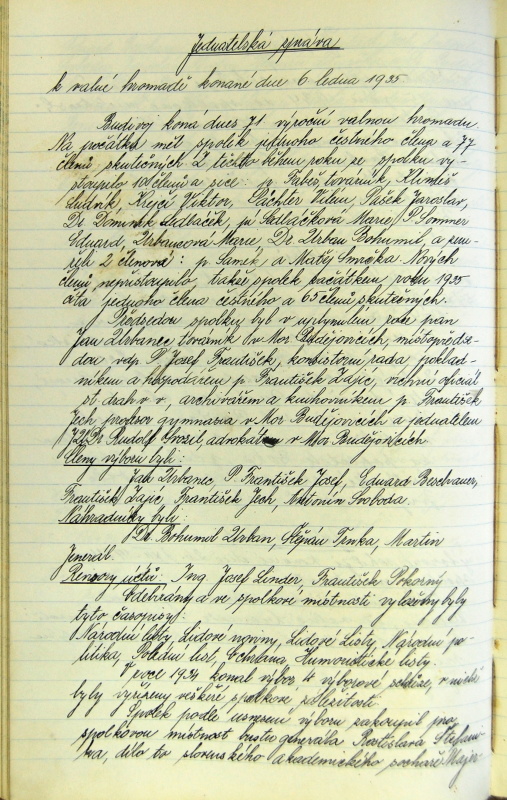 Jednatelská zpráva
k valné hromadě konané dne 6 ledna 1935
Budivoj koná dnes 71 výroční valnou hromadu.
Na počátku měl spolek jednoho čestného člena a 77
členů skutečných Z těchto během roku ze spolku vy-
stoupilo 10 členů a sice: p. továrník, Klimeš
Ludvík, Krejčí Viktor, Vilém, Pašek Jaroslav,
Dr Dominik Sedláček, pí Sedláčková Marie, P. Sommer
Eduard, Urbancová Marie, Dr. Urban Bohumil, a zem-
řeli 2 členové: p. Samek a Matěj Smrčka Nových
členů nepřistoupilo, takže spolek začátkem roku 1935
čítá jednoho člena čestného a 65 členů skutečných.
Předsedou spolku byl v uplynulém roce pan
Jan Urbanec továrník v Mor Budějovicích, místopředse-
dou vdp. P. Josef František, konsistorní rada poklad-
níkem a hospodářem p. František Zajíc, vrchní oficiál
st. drah v v., archivářem a knihovníkem p. František
Jech profesor gymnasia v Mor Budějovicích a jednatelem
JUDr Rudolf advokát v Mor Budějovicích.
Členy výboru byli:
Jan Urbanec, P. František Josef, Eduard
František Zajíc, František Jech, Antonín Svoboda.
Náhradníky byli:
Dr. Bohumil Urban, Štěpán Trnka, Martin
Jenerál.
Revisory účtů: Ing Josef Linder, František Pokorný
Odebírány a ve spolkové místnosti vyloženy byly
tyto časopisy:
Národní listy, Lidové noviny, Lidové Listy, Národní po-
litika, Polední list, Ochrana, Humoristické listy.
V roce 1934 konal výbor 4 výborové schůze, v nichž
byly vyřízeny veškeré spolkové záležitosti.
Spolek podle usnesení výboru zakoupil pro
spolkovou místnost bustu generála Rostislava Štefáni-
ka, dílo to slovenského akademického sochaře Majer-